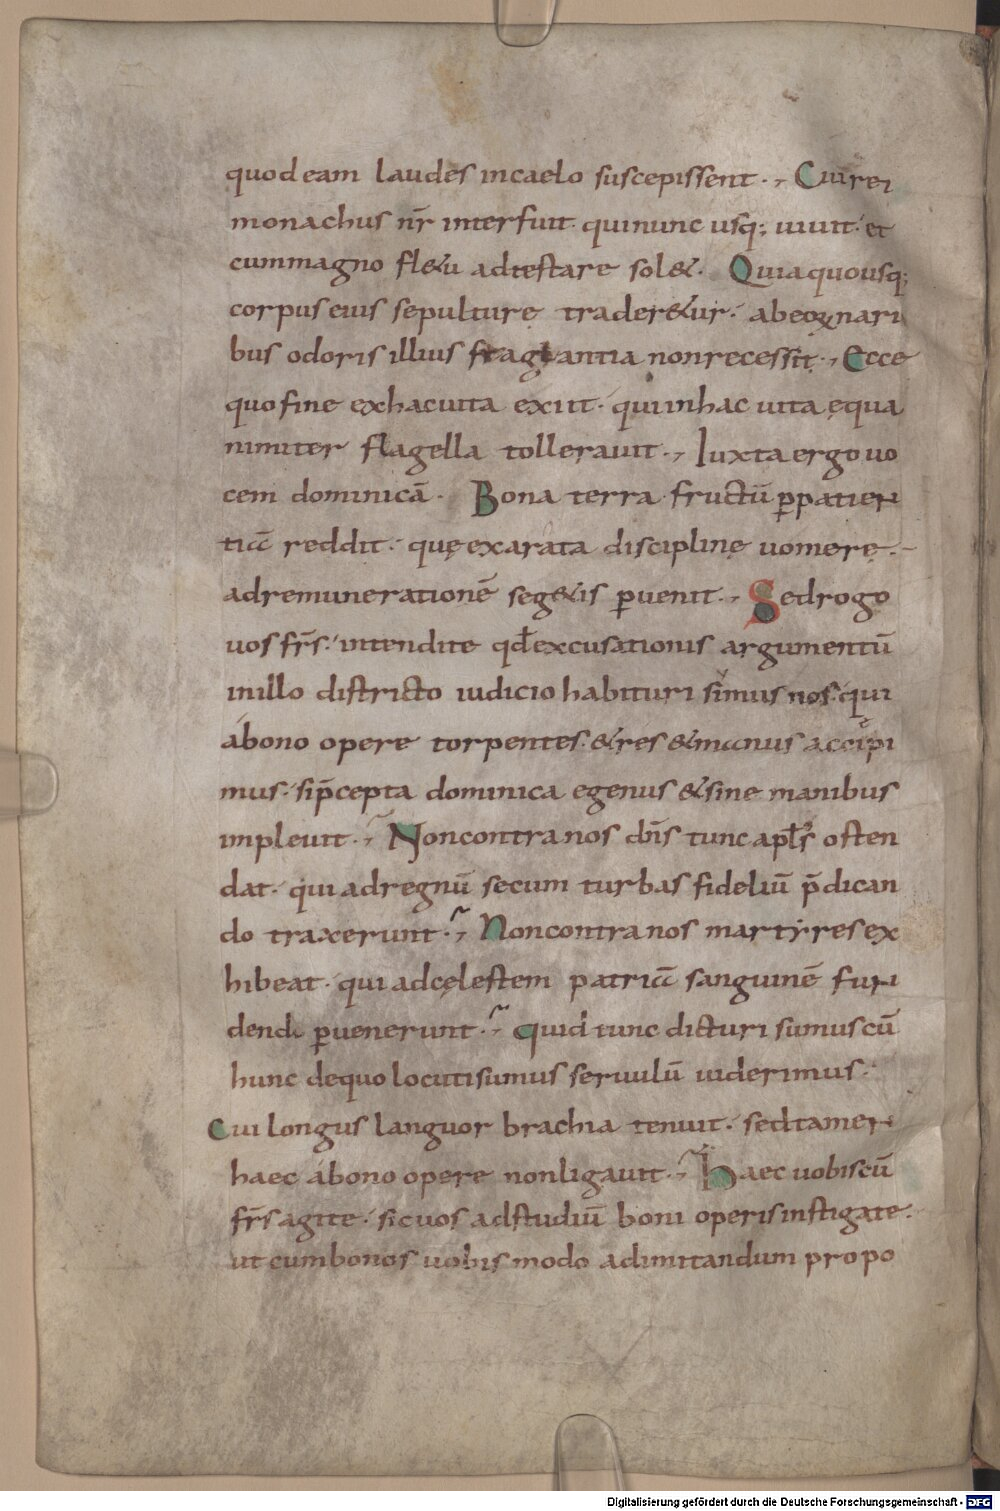 quod eam laudes in caelo suscepissent. Cui rei
monachus nr̄ interfuit. qui nunc usq; uiuit. et
cum magno fl&u adtestare sol&. Quia quousq;
corpus eius sepulturę trader&ur. ab eorum nari
bus odoris illius fragrantia non recessit. Ecce
quo fine ex hac uita exiit. qui in hac uita ęqua
nimiter flagella tollerauit. Iuxta ergo uo
cem dominicā. Bona terra fructū ꝑ patien
tiā reddit. quę exarata disciplinę uomere.
ad remunerationē seg&is ꝑuenit. Sed rogo
uos fr̄s. intendite qđ excusationis argumentū
in illo districto iudicio habituri simus nos. qui
a bono opere torpentes. & res & manus accepi
mus. si p̄cepta dominica egenus & sine manibus
impleuit. Non contra nos dn̄s tunc apl̄s osten
dat. qui ad regnū secum turbas fideliū p̄dican
do traxerunt. Non contra nos martyres ex
hibeat. qui ad cęlestem patriā sanguinē fun
dendo ꝑuenerunt. Quid tunc dicturi sumus cū
hunc de quo locuti sumus seruulū uiderimus.
Cui longus languor brachia tenuit. sed tamen
haec a bono opere non ligauit. Haec uobiscū
fr̄s agite. sic uos ad studiū boni operis instigate.
ut cum bonos uobis modo ad imitandum propo
Digitalisierung gefördert durch die Deutsche Forschungsgemeinschaft - DFG